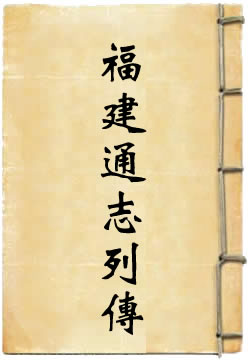 福建通志列傳